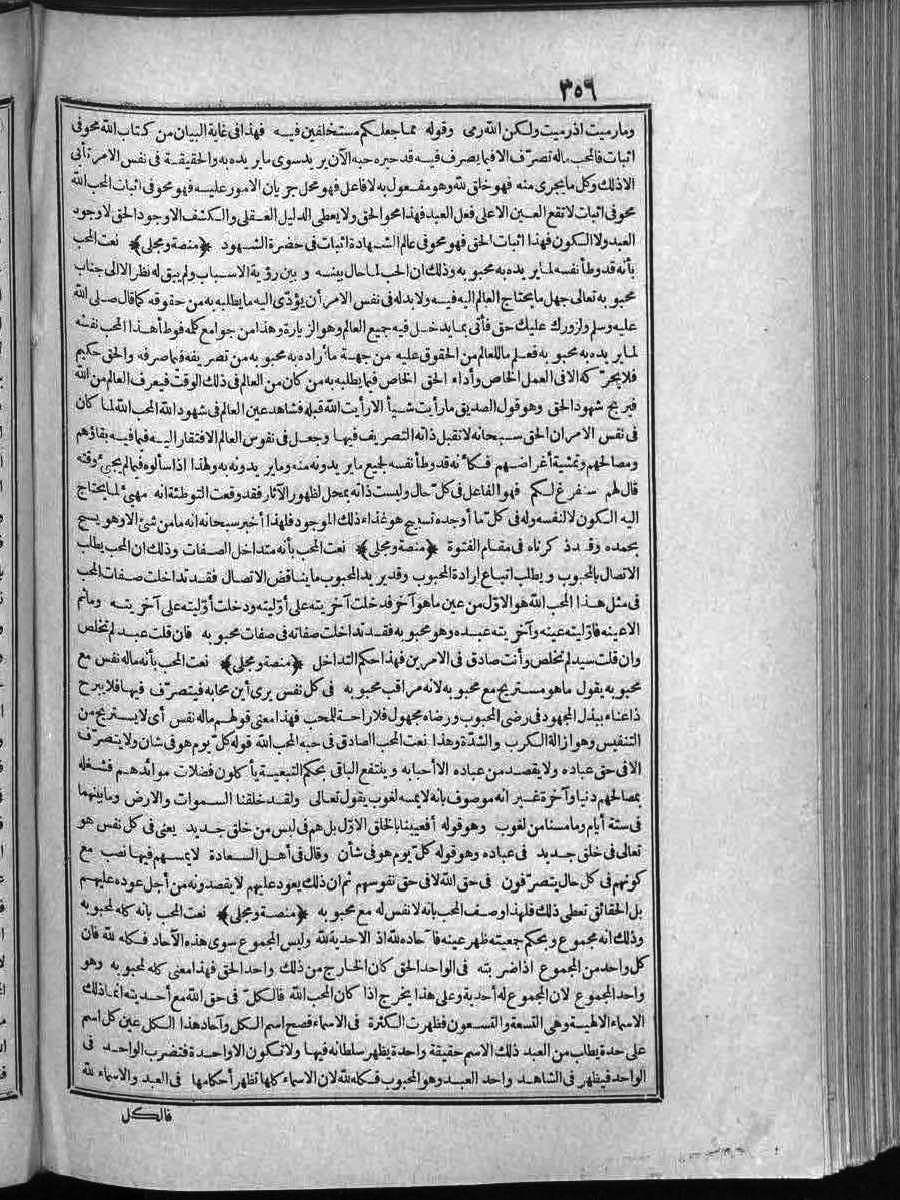 ٣٥٦
وما رميت اذ رميت ولكن الله رمى وقوله مما جعلكم مستخلفين فيه فهذا فى غاية البيان من كتاب الله محو فى
اثبات فالمحب ماله تصرّف الا فيما يصرف فيه قد حيره حبه الآن يريد سوى ما يريده به والحقيقة فى نفس الامر تأبى
الا ذلك وكل ما يجرى منه فهو خلق لله وهو مفعول به لا فاعل فهو محل جريان الامور عليه فهو محو فى اثبات المحب الله
محو فى اثبات لا تقع العين الا على فعل العبد فهذا محو الحق ولا يعطى الدليل العقلى والكشف الا وجود الحق لا وجود
العبد ولا الكون فهذا اثبات الحق فهو محو فى عالم الشهادة اثبات فى حضرة الشهود ﴿منصة ومجلى﴾ نعت المحب
بأنه قد وطأ نفسه لما يريده به محبوبه وذلك ان الحب لما حال بينه و بين رؤية الاسباب ولم يبق له نظر الا الى جناب
محبوبه تعالى جهل ما يحتاج العالم اليه فيه ولا بد له فى نفس الامر أن يؤدّى اليه ما يطلبه به من حقوقه كما قال صلى الله
عليه وسلم ولزورك عليك حق فأتى بما يدخل فيه جميع العالم وهو الزيارة وهذا من جوامع كلمه فوطأ هذا المحب نفسه
لما يريده به محبوبه فعلم ما للعالم من الحقوق عليه من جهة ما أراده به محبوبه من تصريفه فيما صرفه والحق حكيم
فلا يحرّكه الا فى العمل الخاص وأداء الحق الخاص فيما يطلبه به من كان من العالم فى ذلك الوقت فيعرف العالم من الله
فيربح شهود الحق وهو قول الصديق ما رأيت شيأ الا رأيت الله قبله فشاهد عين العالم فى شهود الله المحب الله لما كان
فى نفس الامر ان الحق سبحانه لا تقبل ذاته التصريف فيها وجعل فى نفوس العالم الافتقار اليه فيما فيه بقاؤهم
ومصالحهم وتمشية أغراضهم فكأنه قد وطأ نفسه لجميع ما يريدونه منه وما يريدونه به ولهذا اذا سألوه فيما لم يجئ وقته
قال لهم سنفرغ لكم فهو الفاعل فى كل حال وليست ذاته بمحل لظهور الآثار فقد وقعت التوطئة انه مهئ لما يحتاج
اليه الكون لا لنفسه وله فى كل ما أوجده تسبيح هو غذاء ذلك الموجود فلهذا أخبر سبحانه انه ما من شئ الا وهو يسبح
بحمده وقد ذكرناه فى مقام الفتوة ﴿منصة ومجلى﴾ نعت المحب بأنه متداخل الصفات وذلك ان المحب يطلب
الاتصال بالمحبوب و يطلب اتباع ارادة المحبوب وقد يريد المحبوب ما يناقض الاتصال فقد تداخلت صفات المحب
فى مثل هذا المحب الله هو الاوّل من عين ما هو آخر فدخلت آخريته على أوّليته ودخلت أوّليته على آخريته وما ثم
الا عينه فأوّليته عينه وآخريته عبده وهو محبوبه فقد تداخلت صفاته فى صفات محبوبه فان قلت عبد لم تخلص
وان قلت سيد لم تخلص وأنت صادق فى الامرين فهذا حكم التداخل ﴿منصة ومجلى﴾ نعت المحب بأنه ماله نفس مع
محبوبه يقول ما هو مستريح مع محبوبه لانه مراقب محبوبه فى كل نفس يرى أين محابه فيتصرّف فيها فلا يبرح
ذا عناء ببذل المجهود فى رضى المحبوب ورضاه مجهول فلا راحة للمحب فهذا معنى قولهم ماله نفس أى لا يستريح من
التنفيس وهو ازالة الكرب والشدّة وهذا نعت المحب الصادق فى حبه المحب الله قوله كل يوم هو فى شان ولا يتصرّف
الا فى حق عباده ولا يقصد من عباده الا أحبابه و ينتفع الباقى بحكم التبعية يأكلون فضلات موائدهم فشغله
بمصالحهم دنيا وآخرة غير انه موصوف بانه لا يمسه لغوب يقول تعالى ولقد خلقنا السموات والارض وما بينهما
فى ستة أيام وما مسنا من لغوب وهو قوله أفعيينا بالخلق الاوّل بل هم فى لبس من خلق جديد يعنى فى كل نفس هو
تعالى فى خلق جديد فى عباده وهو قوله كل يوم هو فى شأن وقال فى أهل السعادة لا يمسهم فيها نصب مع
كونهم فى كل حال يتصرّفون فى حق الله لا فى حق نفوسهم ثم ان ذلك يعود عليهم لا يقصدونه من أجل عوده عليهم
بل الحقائق تعطى ذلك فلهذا وصف المحب بانه لا نفس له مع محبوبه ﴿منصة ومجلى﴾ نعت المحب بانه كله لمحبوبه
وذلك انه مجموع وبحكم جمعيته ظهر عينه فآحاده لله اذ الاحدية لله وليس المجموع سوى هذه الآحاد فكله لله فان
كل واحد من المجموع اذا ضربته فى الواحد الحق كان الخارج من ذلك واحد الحق فهذا معنى كله لمحبوبه وهو
واحد المجموع لان المجموع له أحدية وعلى هذا يخرج اذا كان المحب الله فالكل فى حق الله مع أحديته انما ذلك
الاسماء الالهية وهى التسعة والتسعون فظهرت الكثرة فى الاسماء فصح اسم الكل وآحاد هذا الكل عين كل اسم
على حدة يطلب من العبد ذلك الاسم حقيقة واحدة يظهر سلطانه فيها ولا تكون الا واحدة فتضرب الواحد فى
الواحد فيظهر فى الشاهد واحد العبد وهو المحبوب فكله لله لان الاسماء كلها تظهر أحكامها فى العبد والاسماء لله
فالكل